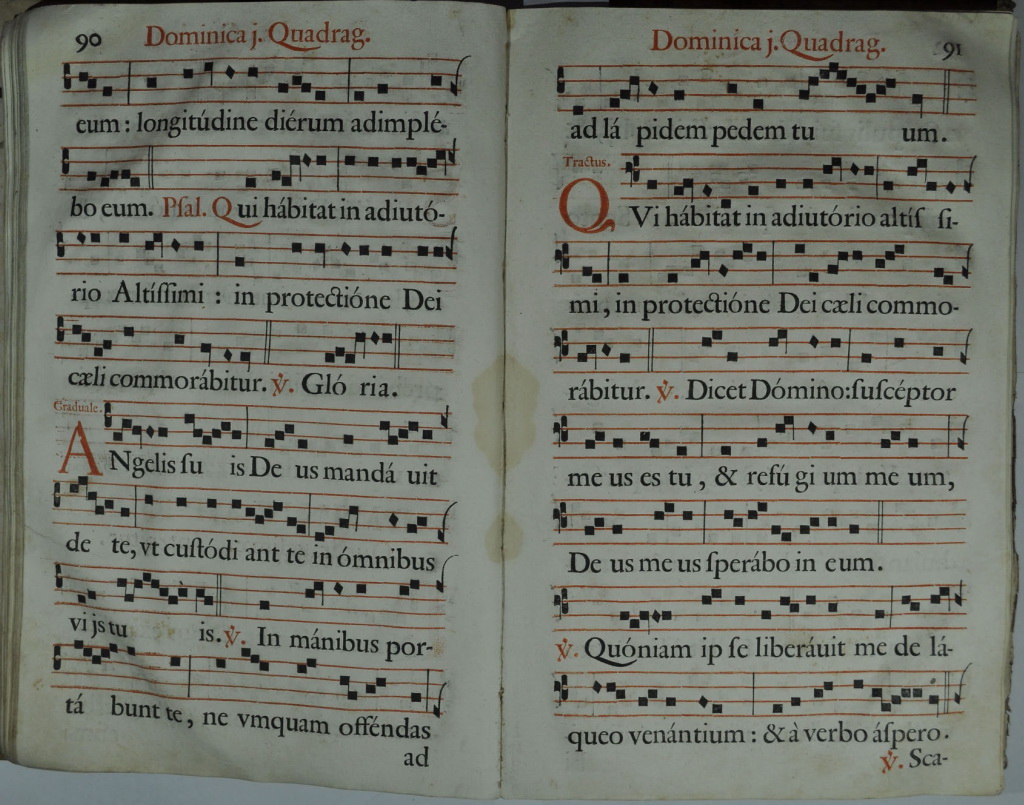 90
Dominica j. Quadrag.
eum: longitúdine diérum adimplé-
bo eum. Psal. Qui hábitat in adiutó-
rio Altíſſimi: in protectióne Dei
cæli commorábitur. ℣. Gló ria.
Graduale.
ANgelis ſu is De us mandá uit
de te, vt cuſtódi ant te in ómnibus
vi js tu is. ℣. In mánibus por-
tá bunt te, ne vmquam offéndas
ad
Dominica j. Quadrag.
91
ad lá pidem pedem tu um.
Tractus.
QVi hábitat in adiutório altíſ ſi-
mi, in protectióne Dei cæli commo-
rábitur. ℣. Dicet Dómino: ſuſcéptor
me us es tu, & refú gi um me um,
De us me us ſperábo in eum.
℣. Quóniam ip ſe liberáuit me de lá-
queo venántium: & à verbo áſpero.
℣. Sca-